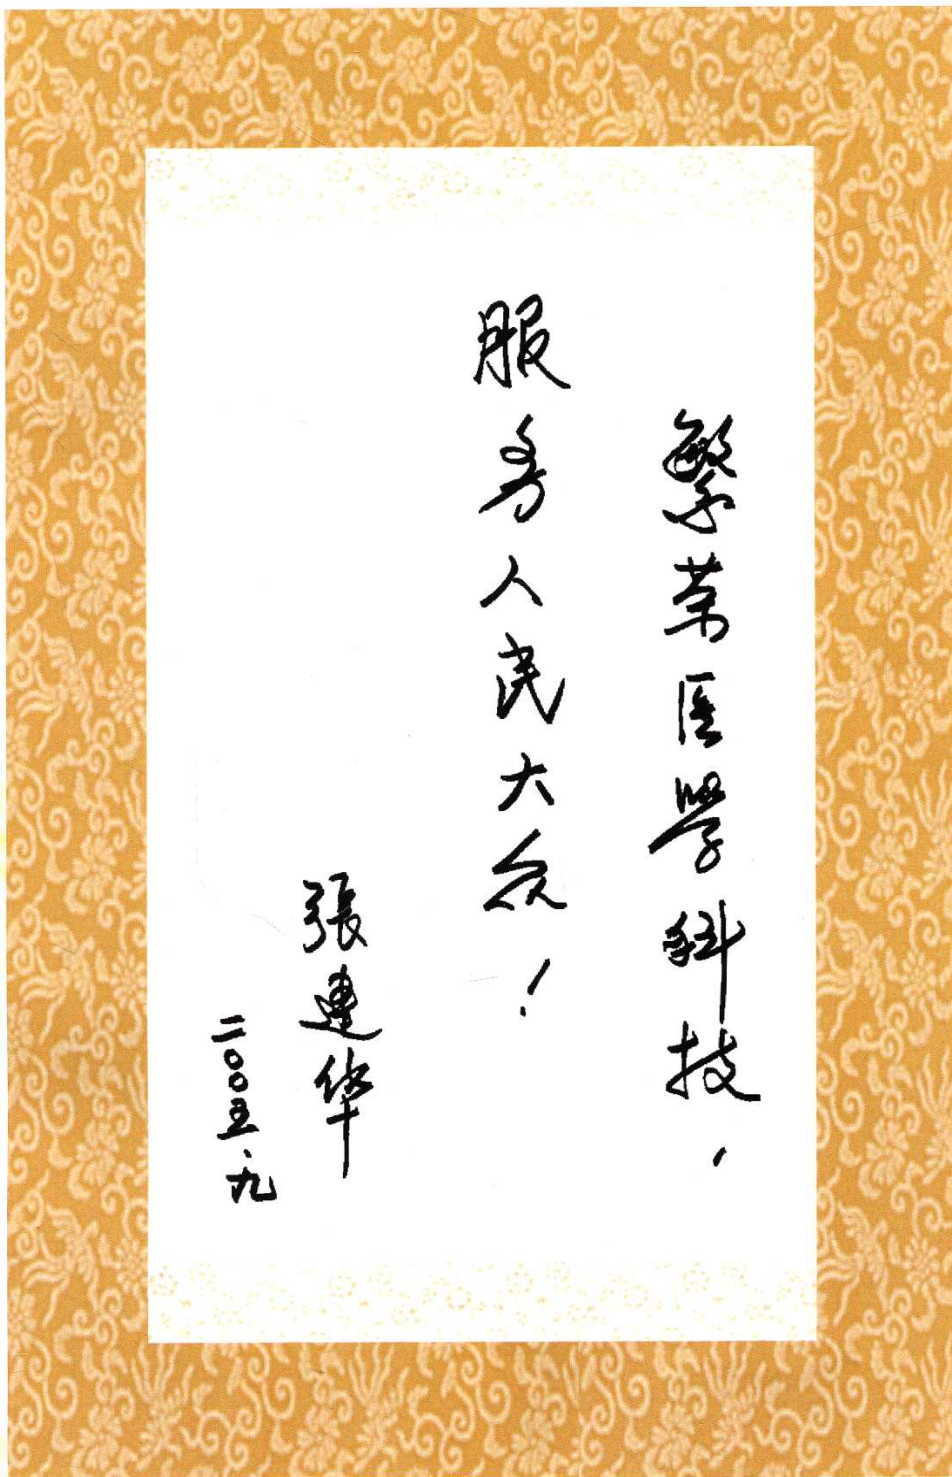 繁荣医學科技，
服务人民大众！
張連华
二00五.九